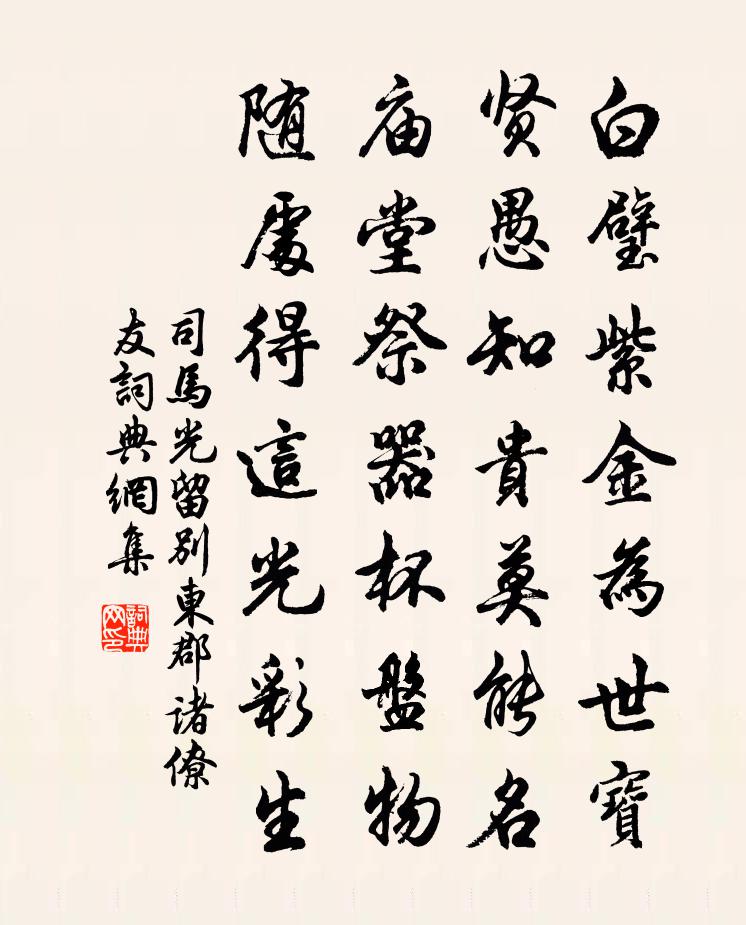 白璧紫金為世寶
贤愚知貴莫能名
庙堂祭器杯盤物
随處得這光彩生
司馬光留别東郡诸僚
友詞典網集
詞典
网印